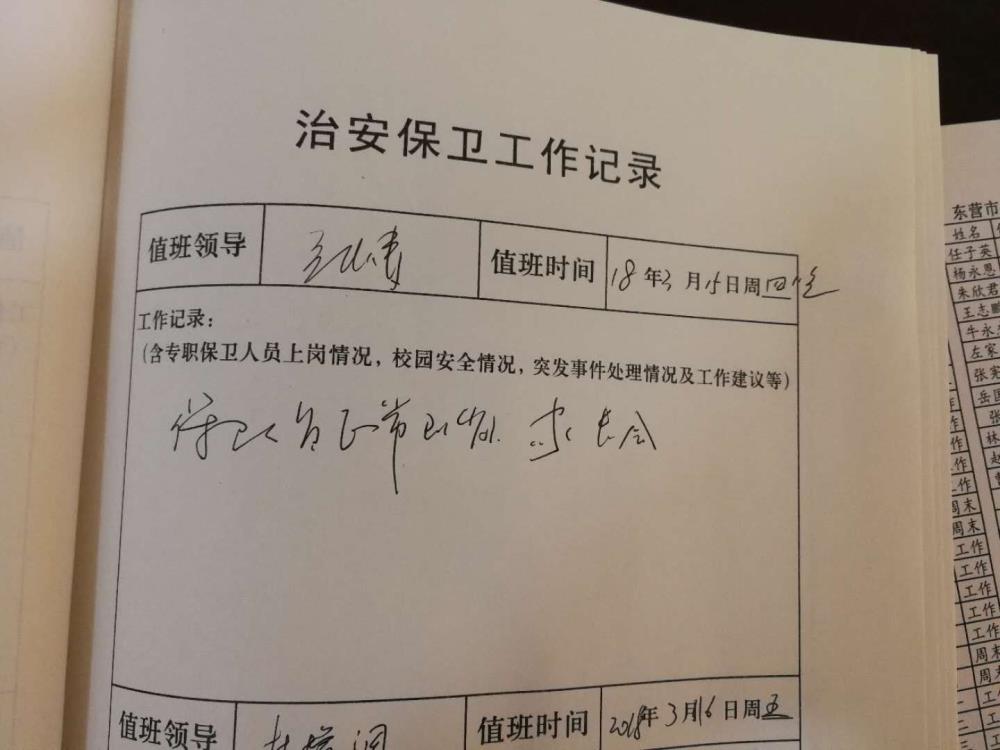 治安保卫工作记录
值班领导
值班时间 18年3月15日周四
工作记录：
（含专职保卫人员上岗情况，校园安全情况，突发事件处理情况及工作建议等）
保卫人员正常 家长会
值班领导
值班时间 2018年3月16日周五
东营市
姓名
任子英
杨永恩
朱欣君
王志鹏
牛永
左家
张宪
岳国
张
林
赵
作
作
工作
工作
周末
周末
工作
工作
工作
工作
工作
周末
周末